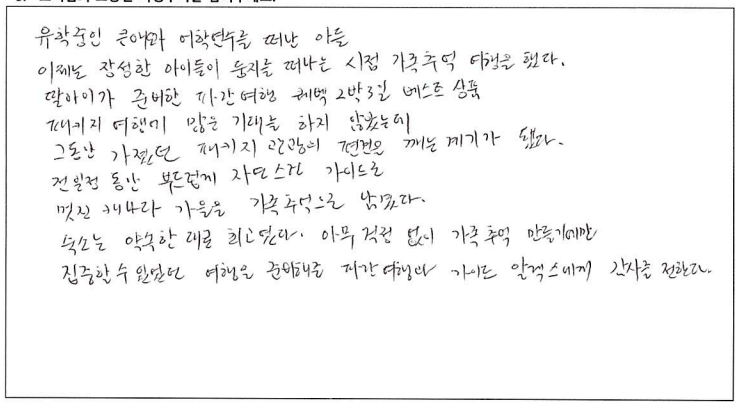 유학중인 큰애와 어학연수를 떠난 아들
이제는 장성한 아이들이 둥지를 떠나는 시점 가족추억 여행을 했다.
딸아이가 준비한 파란여행 퀘벡 2박3일 베스트 상품
패키지 여행에 많은 기대는 하지 않았는데
그동안 가졌던 패키지 관광의 편견을 깨는 계기가 됐다.
전일정 동안 부드럽게 자연스런 가이드로
멋진 캐나다 가을을 가족추억으로 남겼다.
숙소는 약속한 대로 최고였다. 아무 걱정 없이 가족 추억 만들기에만
집중할 수 있었던 여행을 준비해준 파란여행과 가이드 알렉스에게 감사를 전한다.